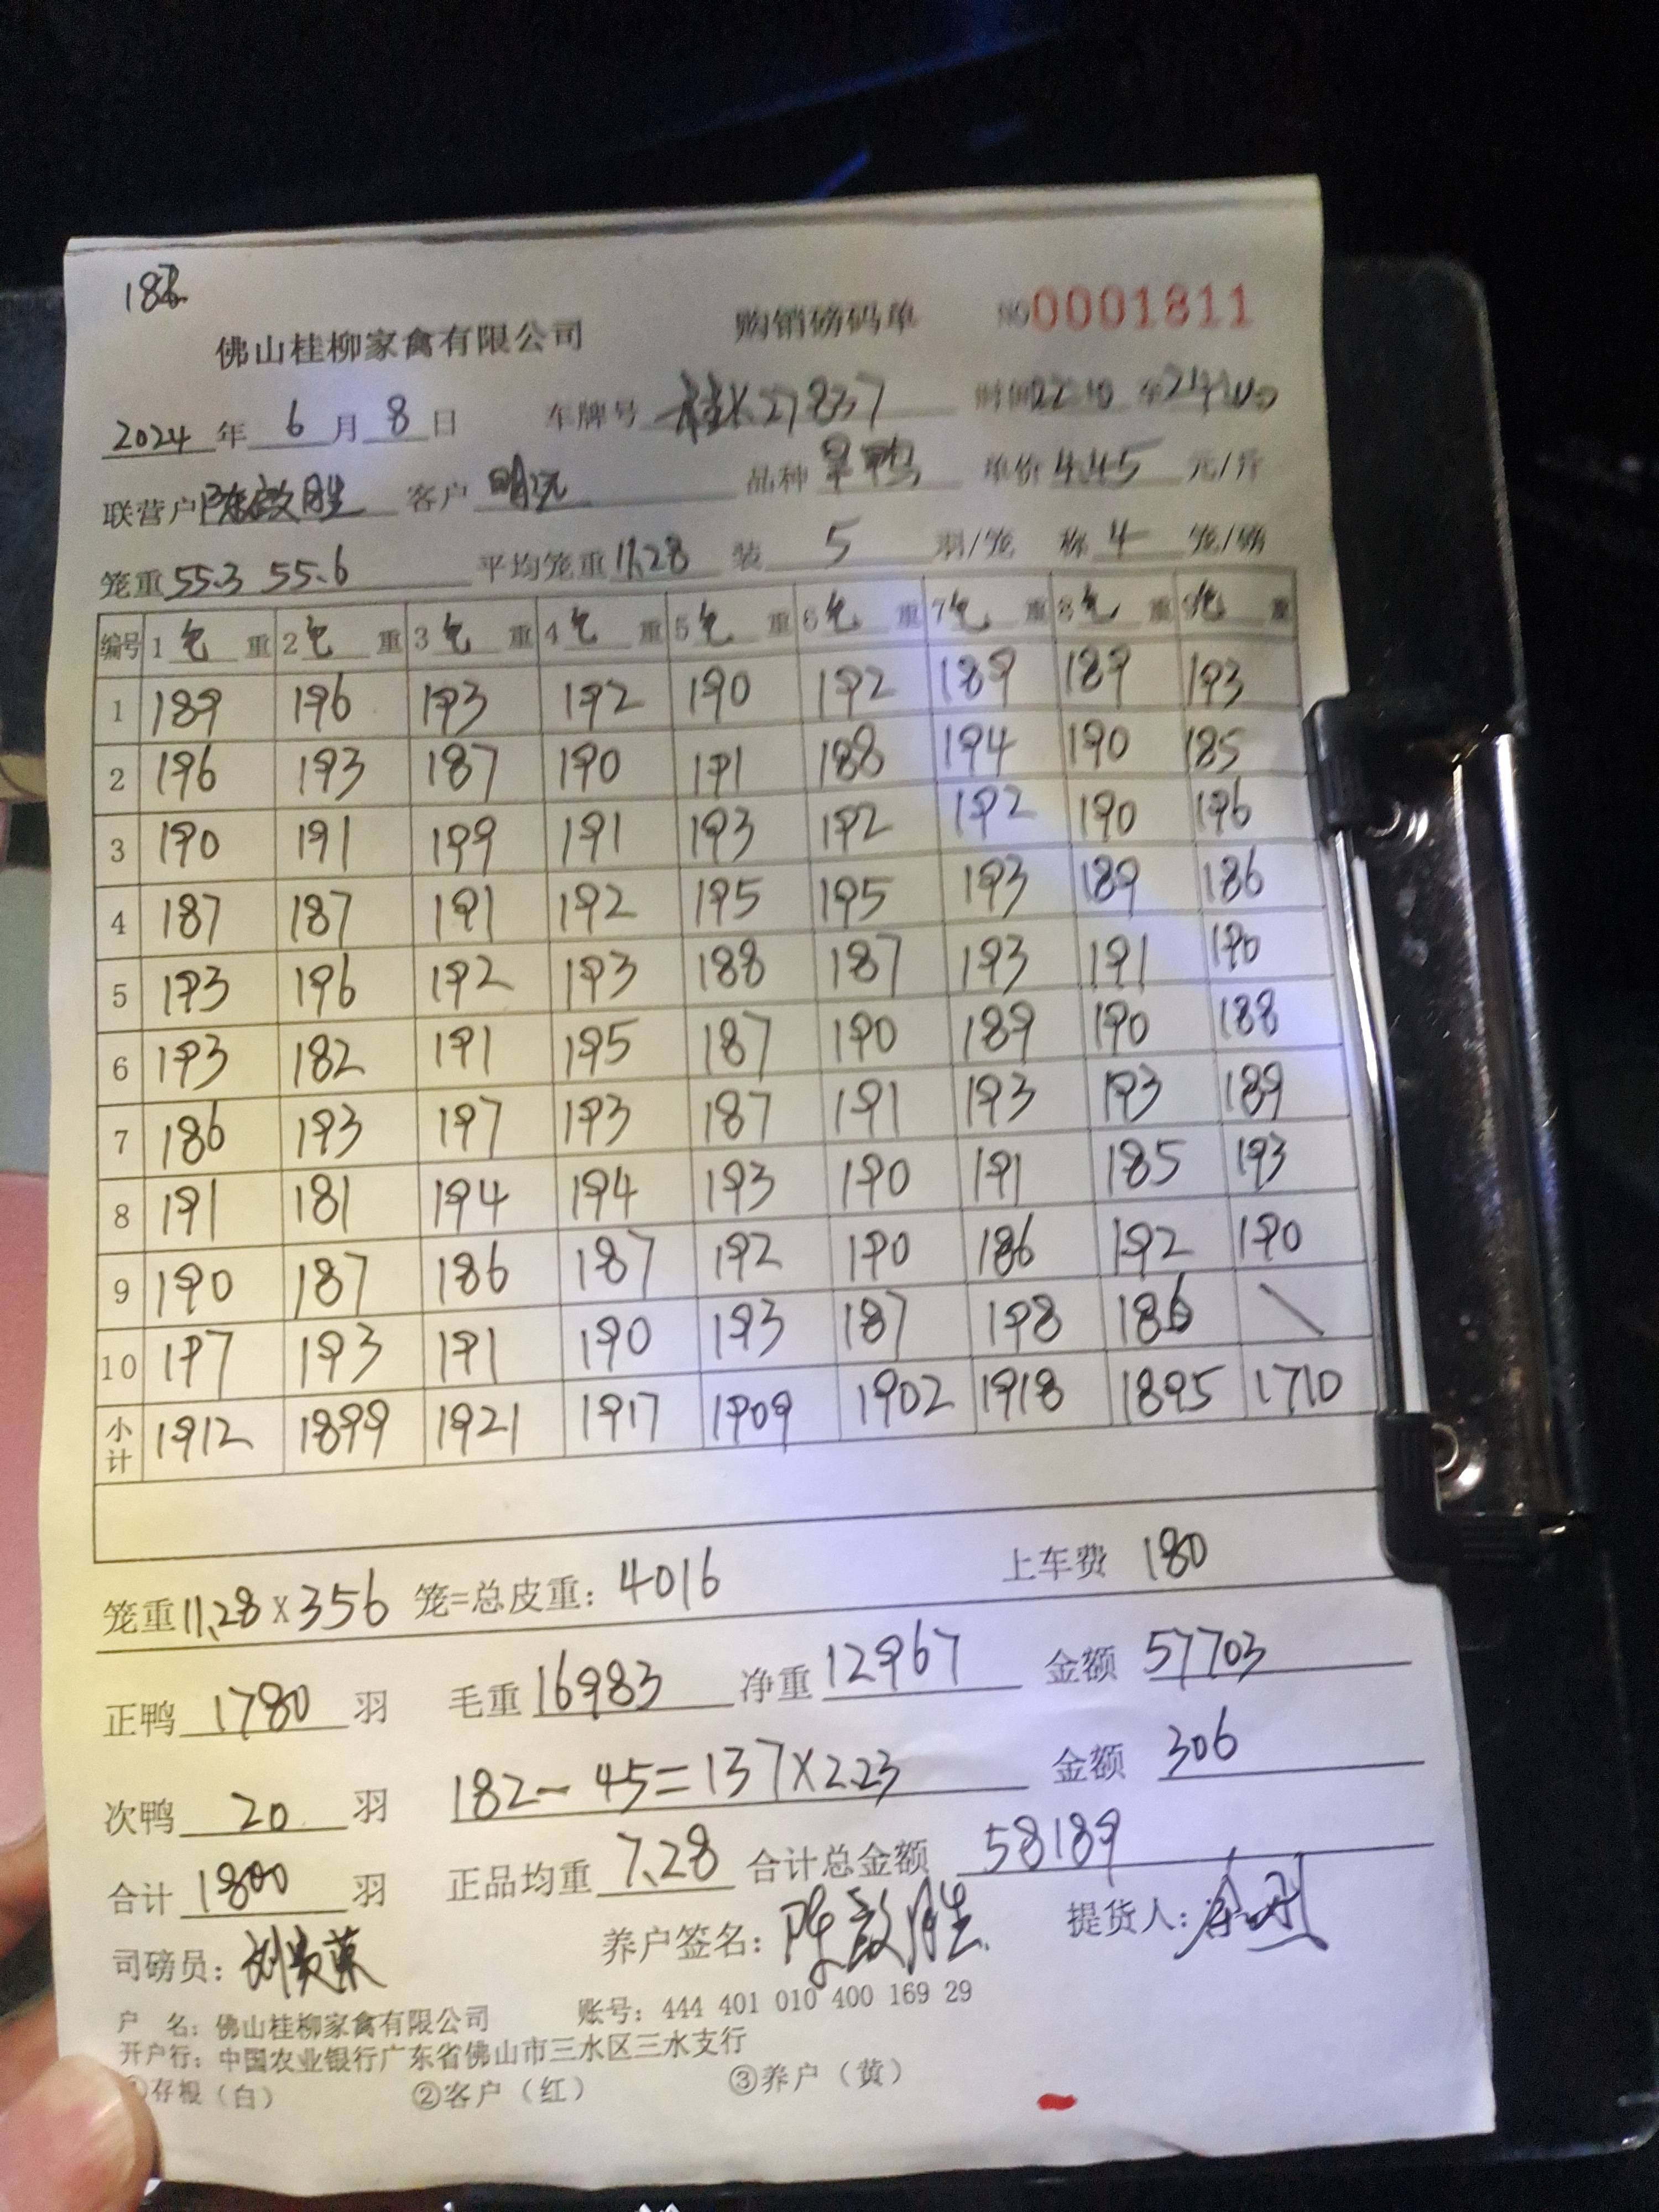 186
佛山桂柳家禽有限公司 购销磅码单 №0001811
2024年6月8日 车牌号 桂K27837 时间22:10至
联营户陈啟胜 客户 明记 品种 旱鸭 单价4.45元/斤
笼重55.3 55.6 平均笼重11.28 装5羽/笼 称4笼/磅
编号 1 重 2 重 3 重 4 重 5 重 6 重 7 重 8 重 9 重
1 189 196 193 192 190 192 189 189 193
2 196 193 187 190 191 188 194 190 185
3 190 191 199 191 193 192 192 190 196
4 187 187 191 192 195 195 193 189 186
5 193 196 192 193 188 187 193 191 190
6 193 182 191 195 187 190 189 190 188
7 186 193 197 193 187 191 193 193 189
8 191 181 194 194 193 190 191 185 193
9 190 187 186 187 192 190 186 192 190
10 197 193 191 190 193 187 198 186 \
小计 1912 1899 1921 1917 1909 1902 1918 1895 1710
笼重11.28×356笼=总皮重：4016 上车费 180
正鸭1780羽 毛重16983 净重12967 金额 57703
次鸭20羽 182-45=137×2.23 金额 306
合计1800羽 正品均重7.28 合计总金额 58189
司磅员： 养户签名：陈啟胜 提货人：
户 名：佛山桂柳家禽有限公司 账号：444 401 010 400 169 29
开户行：中国农业银行广东省佛山市三水区三水支行
①存根（白） ②客户（红） ③养户（黄）